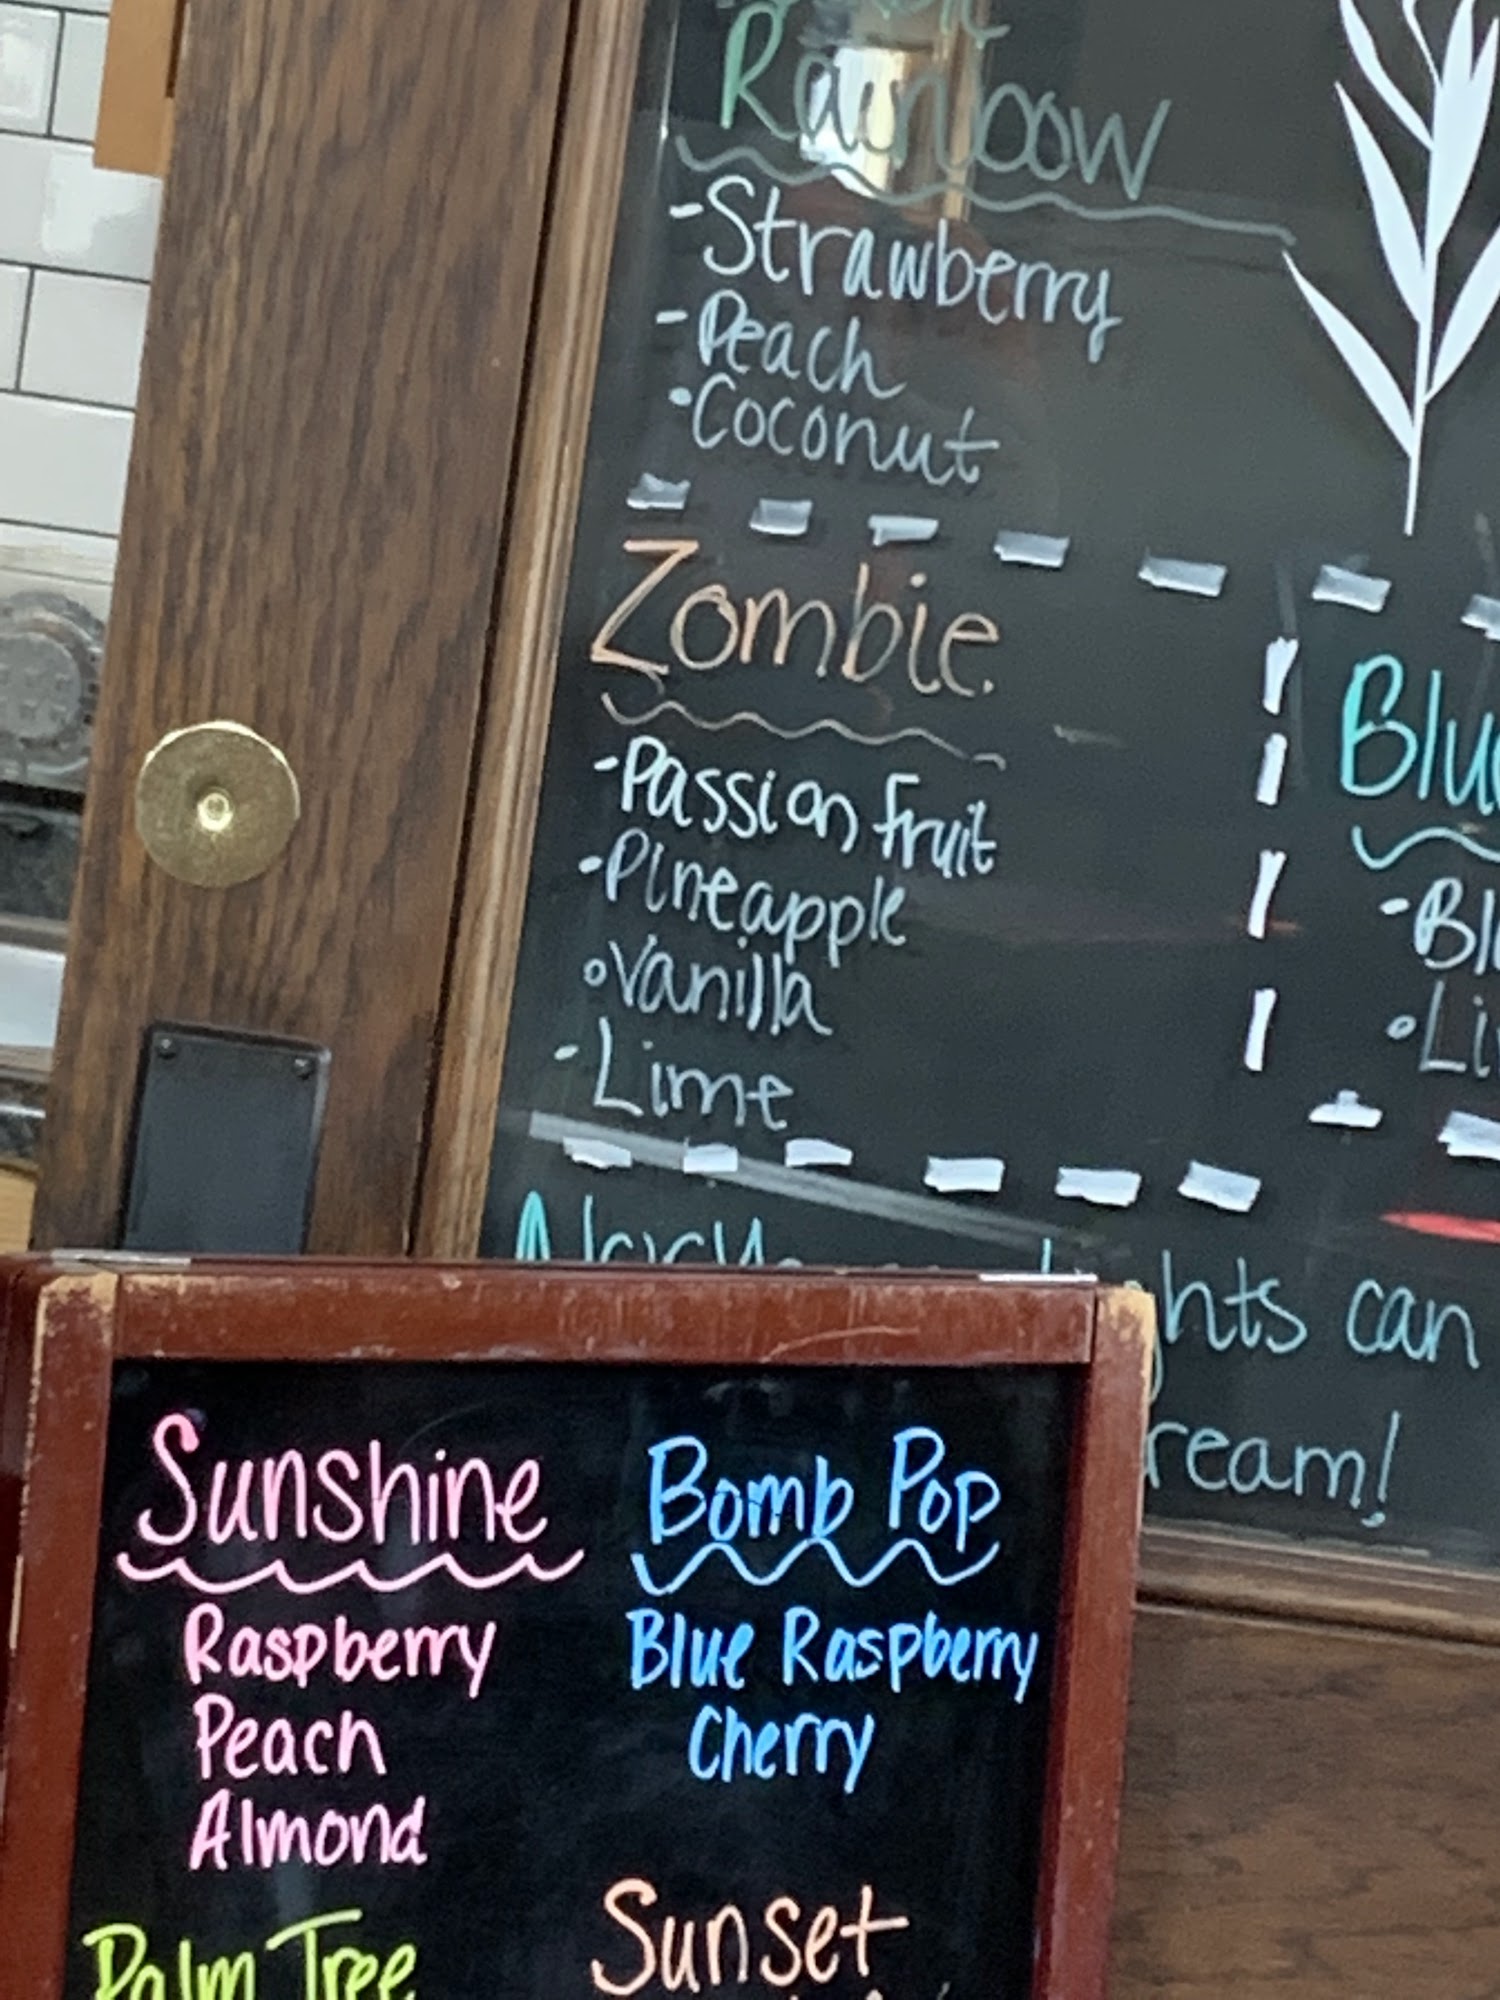 Rainbow
-Strawberry
-Peach
•Coconut
Zombie.
-Passion fruit
-Pineapple
•Vanilla
-Lime
can
Sunshine
Raspberry
Peach
Almond
Bomb Pop
Blue Raspberry
Cherry
Palm Tree
Sunset